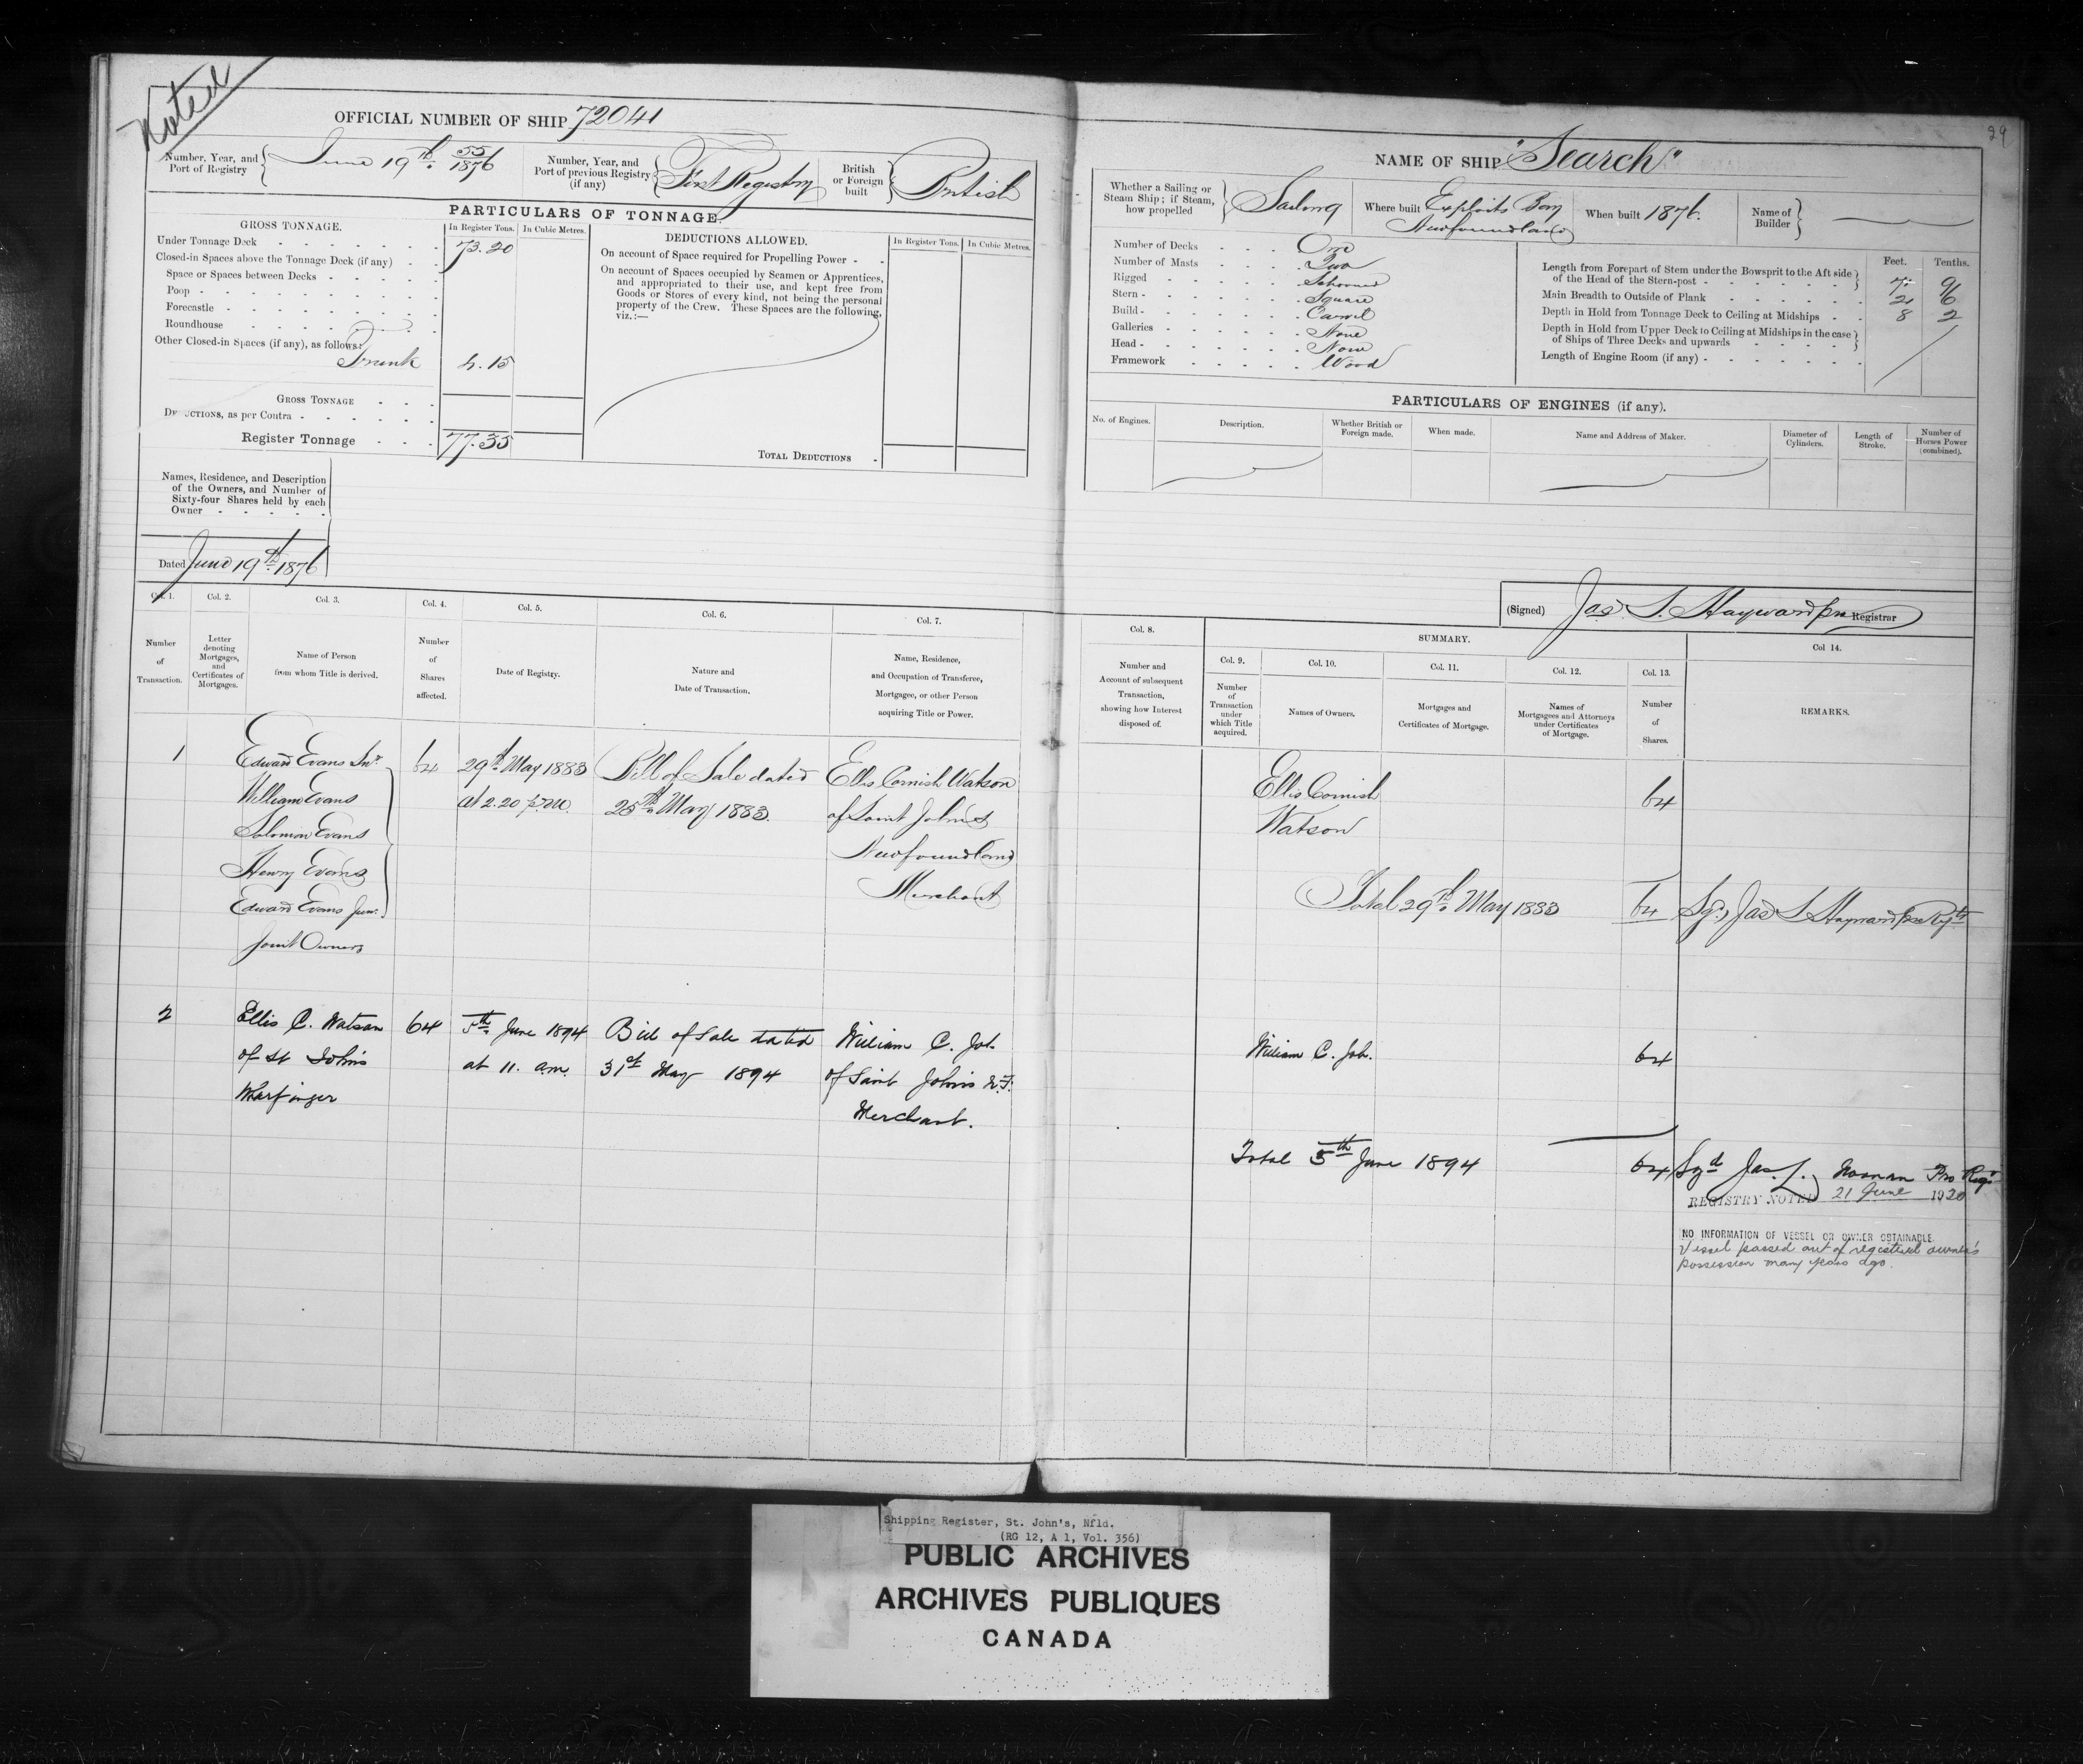 Noted
OFFICIAL NUMBER OF SHIP 72041
Number, Year, and
Port of Registry
June 19th 55/1876
Number, Year, and
Port of previous Registry
(if any)
First Registry
British
or Foreign
built
British
PARTICULARS OF TONNAGE.
GROSS TONNAGE.
In Register Tons. In Cubic Metres.
Under Tonnage Deck 73.20
Closed-in Spaces above the Tonnage Deck (if any)
Space or Spaces between Decks
Poop
Forecastle
Roundhouse
Other Closed-in Spaces (if any), as follows:
Trunk 4.15
GROSS TONNAGE
DEDUCTIONS, as per Contra
Register Tonnage 77.35
DEDUCTIONS ALLOWED.
In Register Tons. In Cubic Metres.
On account of Space required for Propelling Power
On account of Spaces occupied by Seamen or Apprentices,
and appropriated to their use, and kept free from
Goods or Stores of every kind, not being the personal
property of the Crew. These Spaces are the following,
viz.:—
TOTAL DEDUCTIONS
Names, Residence, and Description
of the Owners, and Number of
Sixty-four Shares held by each
Owner
Dated June 19th 1876
29
NAME OF SHIP "Search"
Whether a Sailing or
Steam Ship; if Steam,
how propelled
Sailing
Where built Exploits Bay
Newfoundland
When built 1876.
Name of
Builder
Number of Decks One
Number of Masts Two
Rigged Schooner
Stern Square
Build Carvel
Galleries None
Head None
Framework Wood
Feet. Tenths.
Length from Forepart of Stem under the Bowsprit to the Aft side
of the Head of the Stern-post
Main Breadth to Outside of Plank 21 6
Depth in Hold from Tonnage Deck to Ceiling at Midships 8 2
Depth in Hold from Upper Deck to Ceiling at Midships in the case
of Ships of Three Decks and upwards
Length of Engine Room (if any)
PARTICULARS OF ENGINES (if any).
No. of Engines.
Description.
Whether British or
Foreign made.
When made.
Name and Address of Maker.
Diameter of
Cylinders.
Length of
Stroke.
Number of
Horses Power
(combined).
(Signed) Jas S. Hayward pro Registrar
Col. 1.
Number
of
Transaction.
Col. 2.
Letter
denoting
Mortgages,
and
Certificates of
Mortgages.
Col. 3.
Name of Person
from whom Title is derived.
Col. 4.
Number
of
Shares
affected.
Col. 5.
Date of Registry.
Col. 6.
Nature and
Date of Transaction.
Col. 7.
Name, Residence,
and Occupation of Transferee,
Mortgagee, or other Person
acquiring Title or Power.
Col. 8.
Number and
Account of subsequent
Transaction,
showing how Interest
disposed of.
SUMMARY.
Col. 9.
Number
of
Transaction
under
which Title
acquired.
Col. 10.
Names of Owners.
Col. 11.
Mortgages and
Certificates of Mortgage.
Col. 12.
Names of
Mortgagees and Attorneys
under Certificates
of Mortgage.
Col. 13.
Number
of
Shares.
Col 14.
REMARKS.
1
Edward Evans Snr
William Evans
Solomon Evans
Henry Evans
Edward Evans Junr.
Joint Owners
64
29th May 1883
at 2.20 p.m.
Bill of Sale dated
25th May 1883
Ellis Cornish Watson
of Saint John's
Newfoundland
Merchant
Ellis Cornish
Watson
64
Total 29th May 1883 64 Sgd Jas S Hayward pro Regtr
2
Ellis C. Watson
of St John's
Wharfinger
64
5th June 1894
at 11. a.m.
Bill of Sale dated
31st May 1894
William C. Job
of Saint John's N.F.
Merchant.
William C. Job.
64
Total 5th June 1894 64 Sgd Jas. L. Noonan Pro Regr
REGISTRY NOTED 21 June 1920
NO INFORMATION OF VESSEL OR OWNER OBTAINABLE.
Vessel passed out of registered owner's
possession many years ago.
Shipping Register, St. John's, Nfld.
(RG 12, A 1, Vol. 356)
PUBLIC ARCHIVES
ARCHIVES PUBLIQUES
CANADA